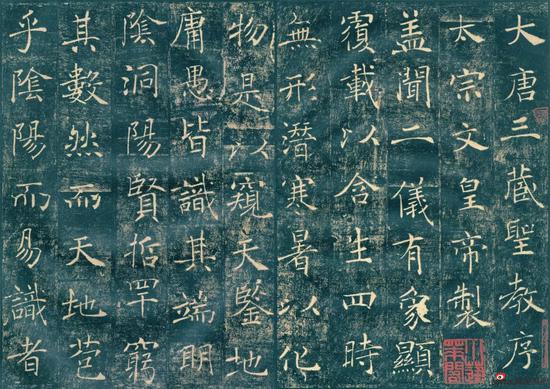 大唐三藏聖教序
太宗文皇帝製
盖聞二儀有象顯
覆載以含生四時
無形潛寒暑以化
物是以窺天鑒地
庸愚皆識其端明
陰洞陽賢哲罕窮
其數然而天地苞
乎陰陽而易識者